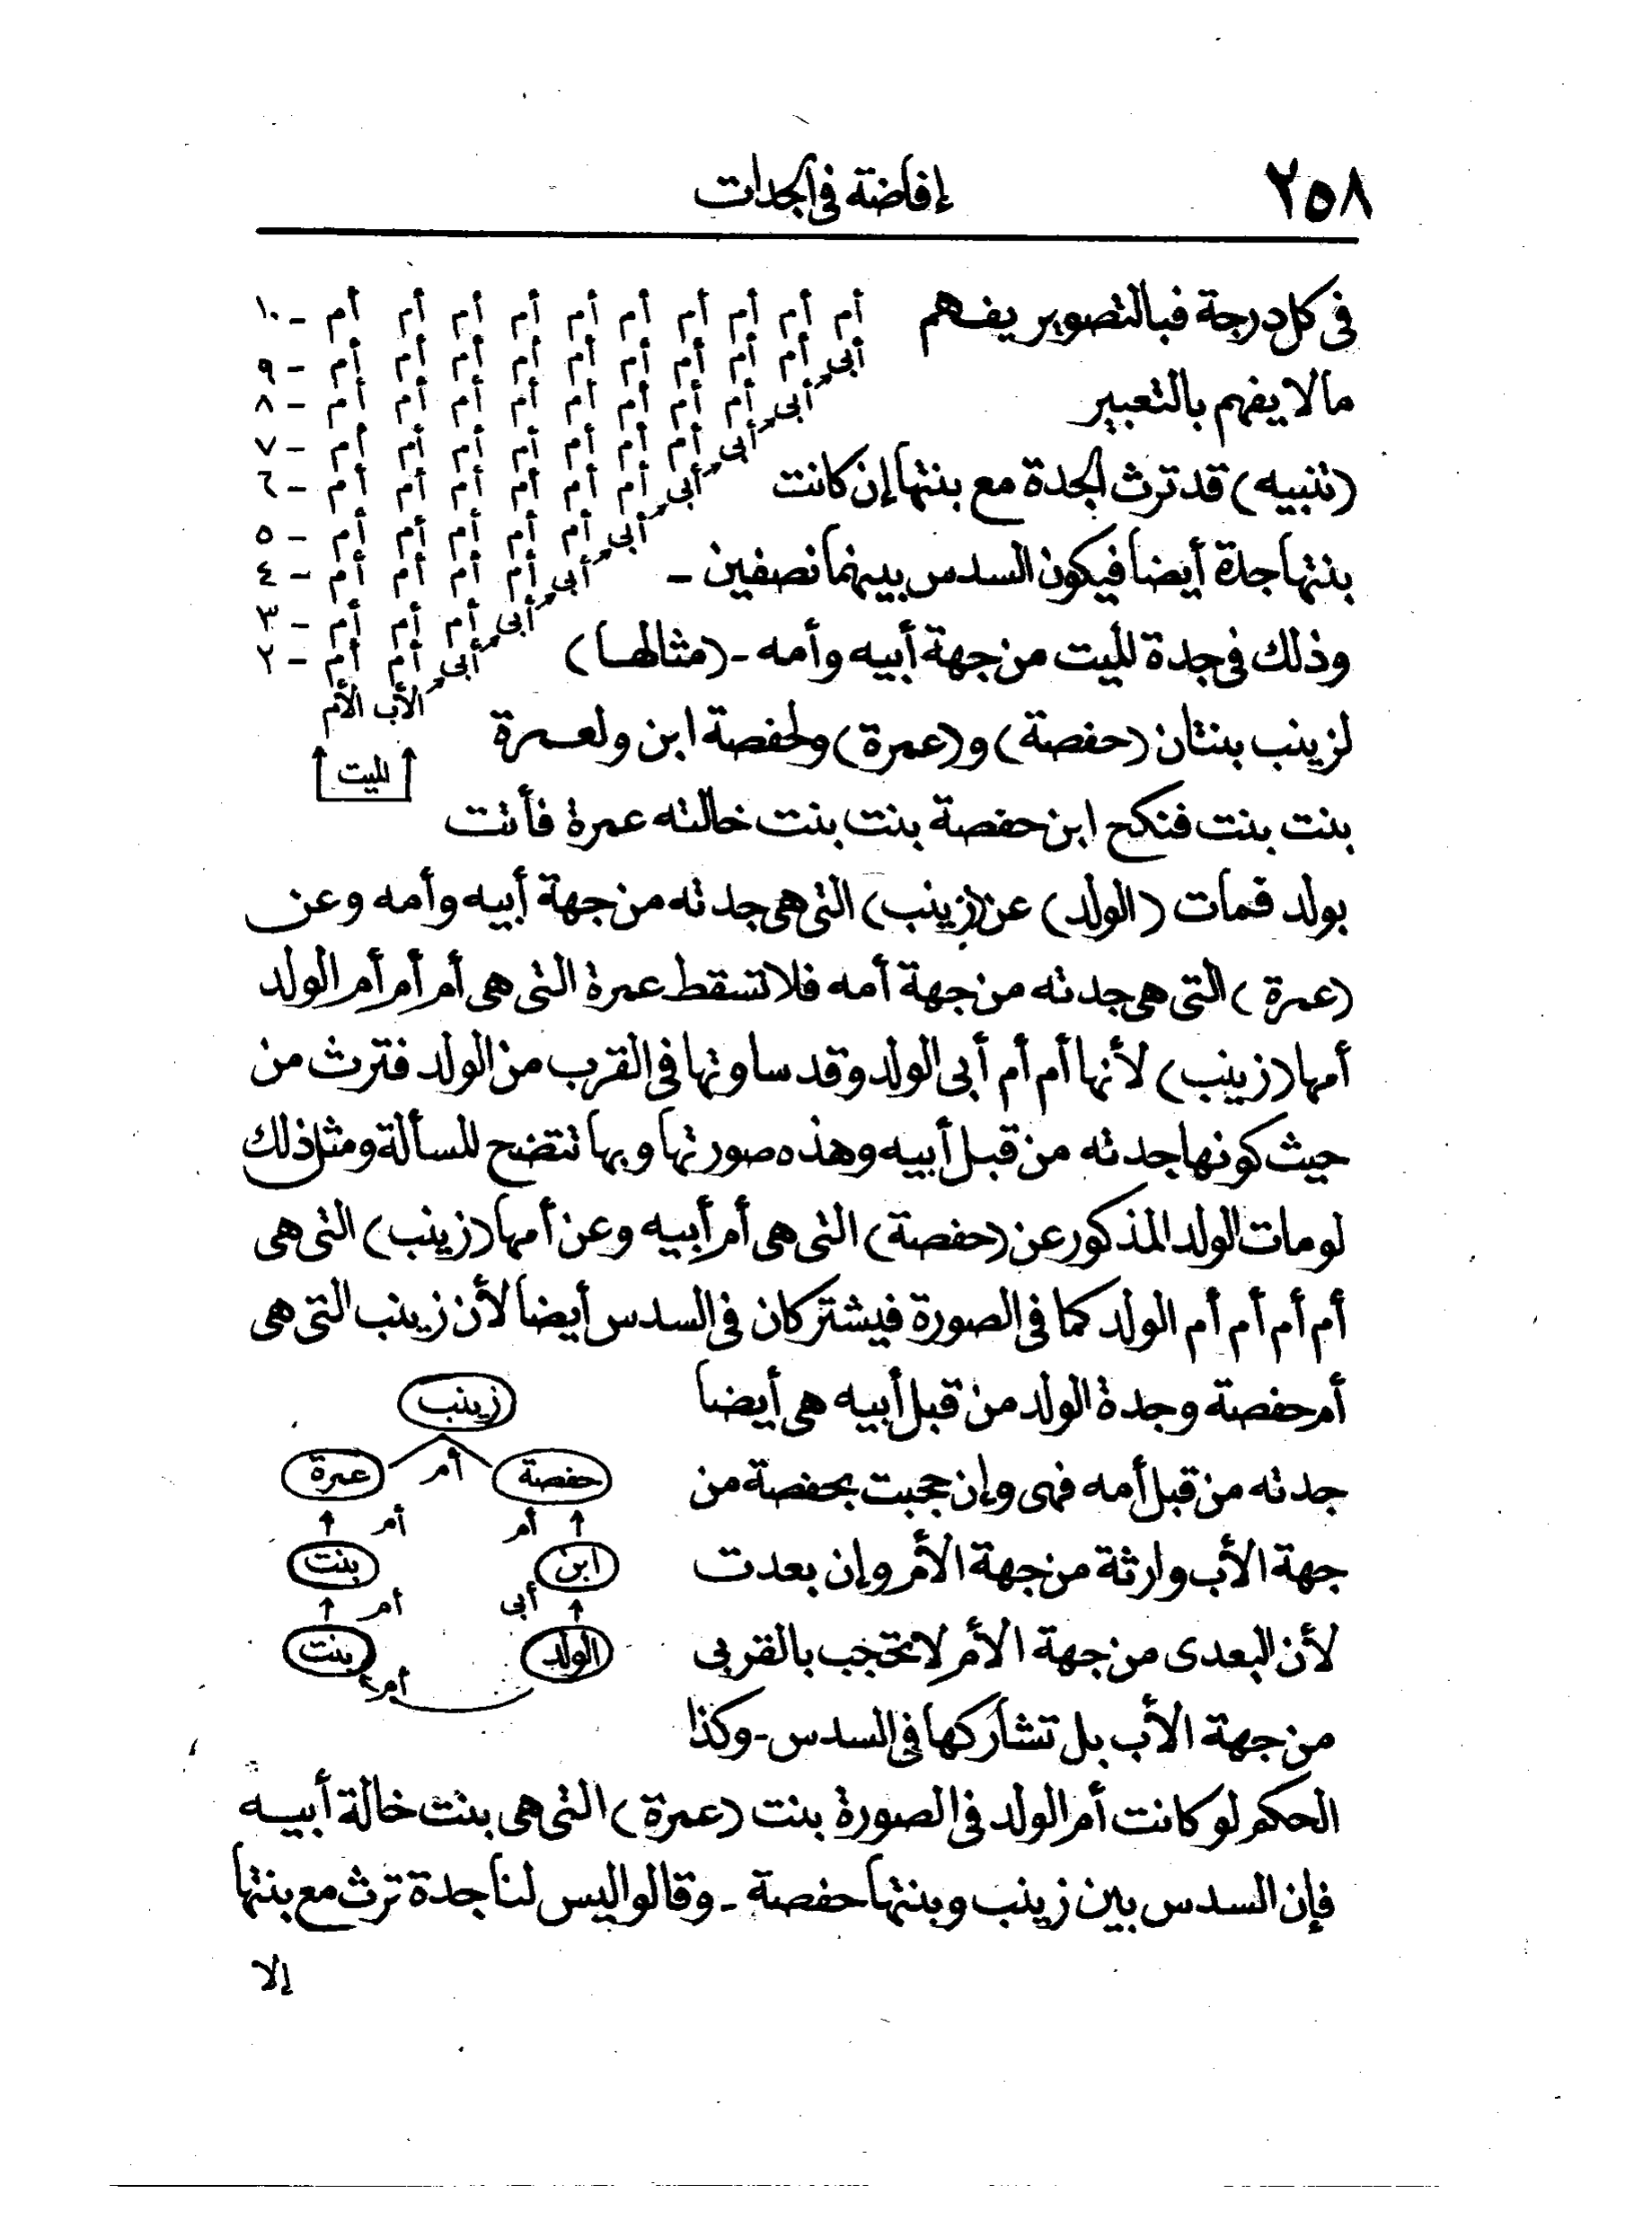 ٢٥٨
إفاضة في الجدات
في كل درجة فبالتصوير يفهم
مالا يفهم بالتعبير
أم أم أم أم أم أم أم أم أم أم - ١٠
أبي أم أم أم أم أم أم أم أم أم - ٩
أبي أم أم أم أم أم أم أم أم - ٨
أبي أم أم أم أم أم أم أم - ٧
أبي أم أم أم أم أم أم - ٦
أبي أم أم أم أم أم - ٥
أبي أم أم أم أم - ٤
أبي أم أم أم - ٣
أبي أم أم - ٢
الأب الأم
الميت
(تنبيه) قد ترث الجدة مع بنتها إن كانت
بنتها جدة أيضا فيكون السدس بينهما نصفين -
وذلك في جدة للميت من جهة أبيه وأمه - (مثالها)
لزينب بنتان (حفصة) و (عمرة) ولحفصة ابن ولعمرة
بنت بنت فنكح ابن حفصة بنت بنت خالته عمرة فأتت
بولد فمات (الولد) عن (زينب) التي هي جدته من جهة أبيه وأمه وعن
(عمرة) التي هي جدته من جهة أمه فلا تسقط عمرة التي هي أم أم أم الولد
أمها (زينب) لأنها أم أم أبي الولد وقد ساوتها في القرب من الولد فترث من
حيث كونها جدته من قبل أبيه وهذه صورتها وبها تتضح المسألة ومثل ذلك
لو مات الولد المذكور عن (حفصة) التي هي أم أبيه وعن أمها (زينب) التي هي
أم أم أم أم الولد كما في الصورة فيشتركان في السدس أيضا لأن زينب التي هي
أم حفصة وجدة الولد من قبل أبيه هي أيضا
جدته من قبل أمه فهى وإن حجبت بحفصة من
جهة الأب وارثة من جهة الأم وإن بعدت
لأن البعدى من جهة الأم لا تحجب بالقربى
من جهة الأب بل تشاركها في السدس - وكذا
زينب
حفصة أم عمرة
أم أم
ابن بنت
أبي أم
الولد بنت
أم
الحكم لو كانت أم الولد في الصورة بنت (عمرة) التي هي بنت خالة أبيه
فإن السدس بين زينب وبنتها حفصة - وقالوا ليس لنا جدة ترث مع بنتها
إلا